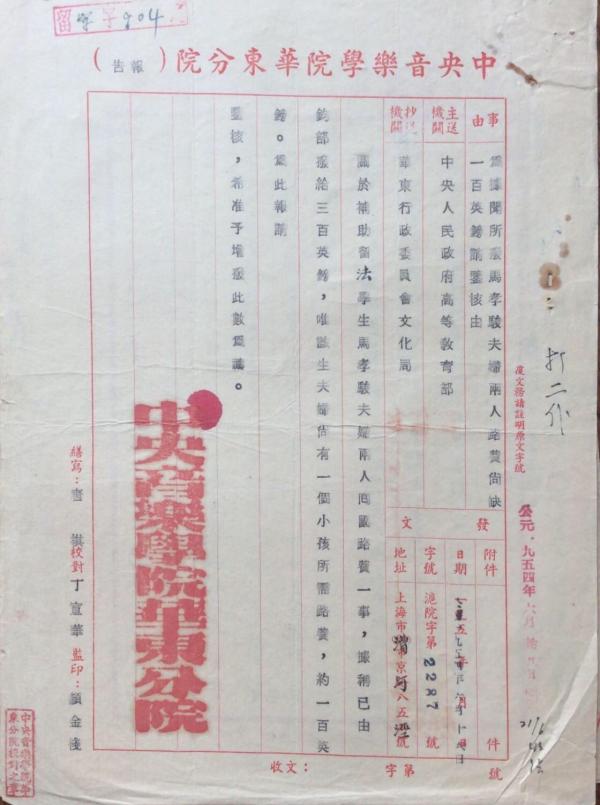 留字 904
中央音樂學院華東分院（報告）
事由
為據聞所發馬孝駿夫婦兩人路費尚缺
一百英鎊請鑒核由
主送機關
中央人民政府高等教育部
抄送機關
華東行政委員會文化局
發文
附件
件
日期
字號
滬院字第2287號
地址
上海市
號
關於補助留法學生馬孝駿夫婦兩人回國路費一事，據稱已由
鈞部發給三百英鎊，唯該生夫婦尚有一個小孩所需路費，約一百英
鎊。為此報請
鑒核，希准予增發此數為禱。
中央音樂學院華東分院
繕寫：
校對 丁宣華
監印：顧金
復文務請註明原文字號
公元一九五四年六月
打二份
收文：
字第
號
中央音樂學院華東分院校對之章